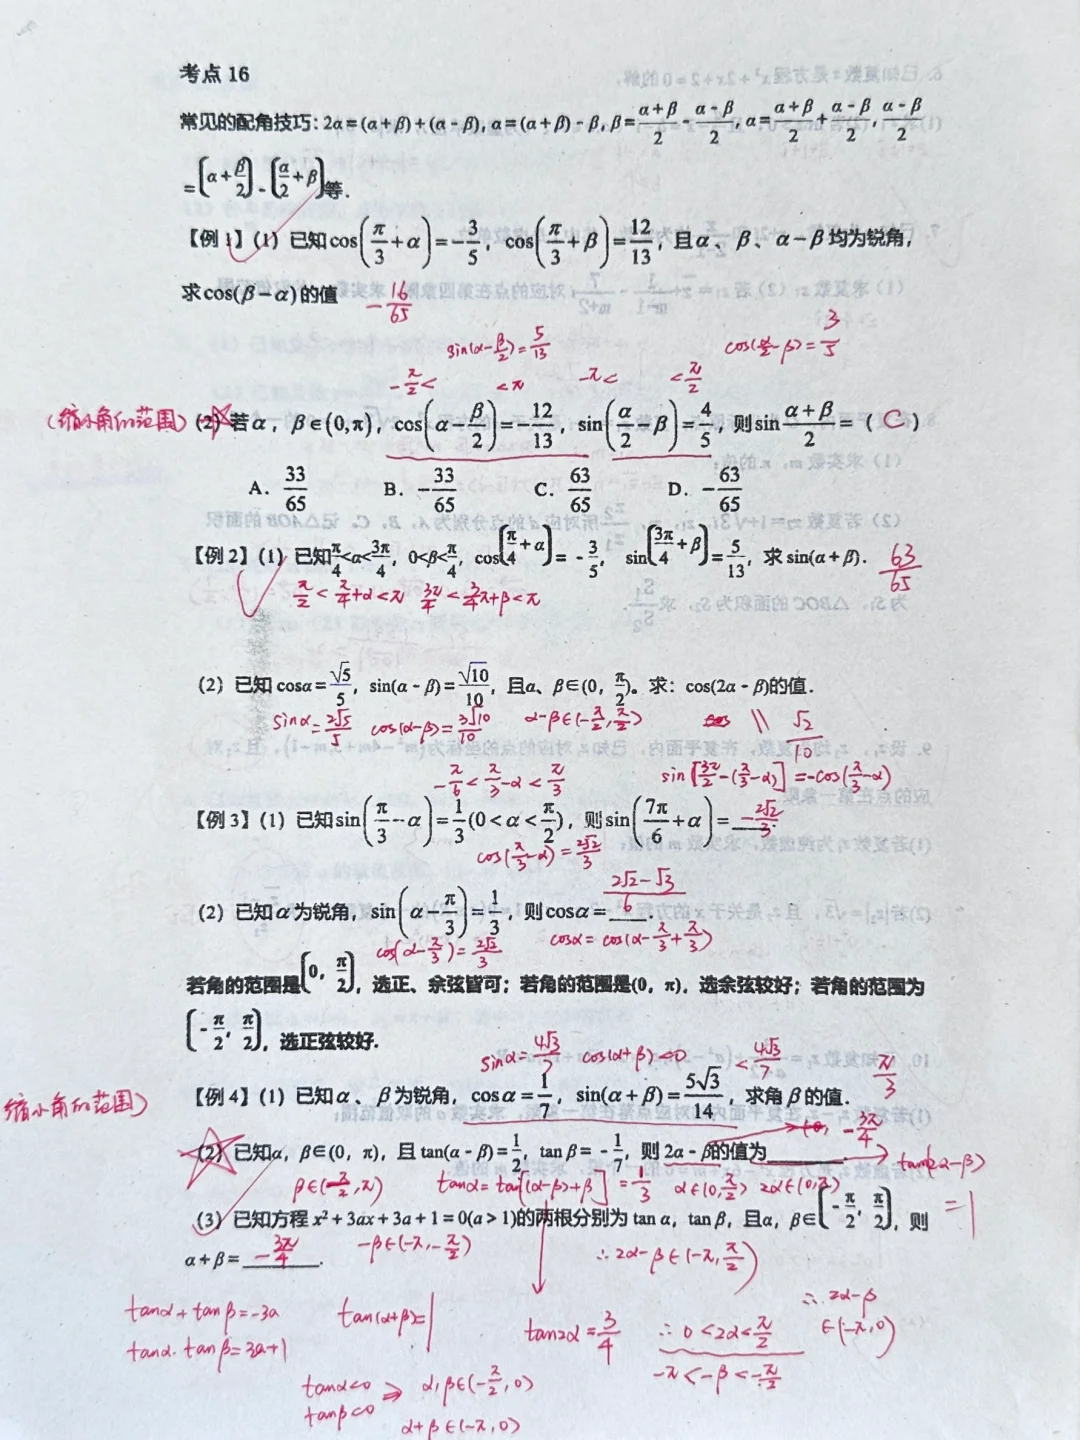 考点 16
常见的配角技巧: 2α=(α+β)+(α-β), α=(α+β)-β, β=\frac{α+β}{2}-\frac{α-β}{2}, α=\frac{α+β}{2}+\frac{α-β}{2}, \frac{α-β}{2}
=(α+\frac{β}{2})-(\frac{α}{2}+β)等.
【例 1】(1) 已知cos(\frac{π}{3}+α)=-\frac{3}{5}, cos(\frac{π}{3}+β)=\frac{12}{13}, 且α、β、α-β均为锐角,
求cos(β-α)的值 -\frac{16}{65}
sin(α-\frac{β}{2})=\frac{5}{13} cos(\frac{α}{2}-β)=\frac{3}{5}
-\frac{π}{2}< <π -π< <\frac{π}{2}
(缩小角的范围) (2) 若α, β∈(0,π), cos(α-\frac{β}{2})=-\frac{12}{13}, sin(\frac{α}{2}-β)=\frac{4}{5}, 则sin\frac{α+β}{2}=( C )
A. \frac{33}{65} B. -\frac{33}{65} C. \frac{63}{65} D. -\frac{63}{65}
【例 2】(1) 已知\frac{π}{4}<α<\frac{3π}{4}, 0<β<\frac{π}{4}, cos(\frac{π}{4}+α)=-\frac{3}{5}, sin(\frac{3π}{4}+β)=\frac{5}{13}, 求 sin(α+β). \frac{63}{65}
\frac{π}{2}<\frac{π}{4}+α<π \frac{3π}{4}<\frac{3}{4}π+β<π
(2) 已知 cosα=\frac{√5}{5}, sin(α-β)=\frac{√10}{10}, 且α、β∈(0, \frac{π}{2})。求: cos(2α-β)的值.
sinα=\frac{2√5}{5} cos(α-β)=\frac{3√10}{10} α-β∈(-\frac{π}{2},\frac{π}{2}) \frac{√2}{10}
-\frac{π}{6}<\frac{π}{3}-α<\frac{π}{3} sin[\frac{3π}{2}-(\frac{π}{3}-α)]=-cos(\frac{π}{3}-α)
【例 3】(1) 已知sin(\frac{π}{3}-α)=\frac{1}{3}(0<α<\frac{π}{2}), 则sin(\frac{7π}{6}+α)=-\frac{2√2}{3}.
cos(\frac{π}{3}-α)=\frac{2√2}{3}
(2) 已知α为锐角, sin(α-\frac{π}{3})=\frac{1}{3}, 则cosα=\frac{2√2-√3}{6}.
cos(α-\frac{π}{3})=\frac{2√2}{3} cosα=cos(α-\frac{π}{3}+\frac{π}{3})
若角的范围是(0, \frac{π}{2}), 选正、余弦皆可; 若角的范围是(0, π), 选余弦较好; 若角的范围为
(-\frac{π}{2}, \frac{π}{2}), 选正弦较好.
sinα=\frac{4√3}{7} cos(α+β)<0 <\frac{4√3}{7} \frac{π}{3}
缩小角的范围) 【例 4】(1) 已知α、β为锐角, cosα=\frac{1}{7}, sin(α+β)=\frac{5√3}{14}, 求角β的值.
(2) 已知α, β∈(0, π), 且 tan(α-β)=\frac{1}{2}, tan β=-\frac{1}{7}, 则 2α-β的值为 -\frac{3π}{4}. tan(2α-β)
=1
β∈(\frac{π}{2},π) tanα=tan[(α-β)+β]=\frac{1}{3} α∈(0,\frac{π}{2}) 2α∈(0,π)
(3) 已知方程 x²+3ax+3a+1=0(a>1)的两根分别为 tan α, tan β, 且α, β∈(-\frac{π}{2}, \frac{π}{2}), 则
α+β=-\frac{3π}{4}. -β∈(-π,-\frac{π}{2}) ∴2α-β∈(-π,\frac{π}{2})
tanα+tanβ=-3a tan(α+β)=1 tan2α=\frac{3}{4} ∴0<2α<\frac{π}{2} ∴2α-β
tanα·tanβ=3a+1 -π<-β<-\frac{π}{2} ∈(-π,0)
tanα<0 ⇒ α,β∈(-\frac{π}{2},0)
tanβ<0
α+β∈(-π,0)